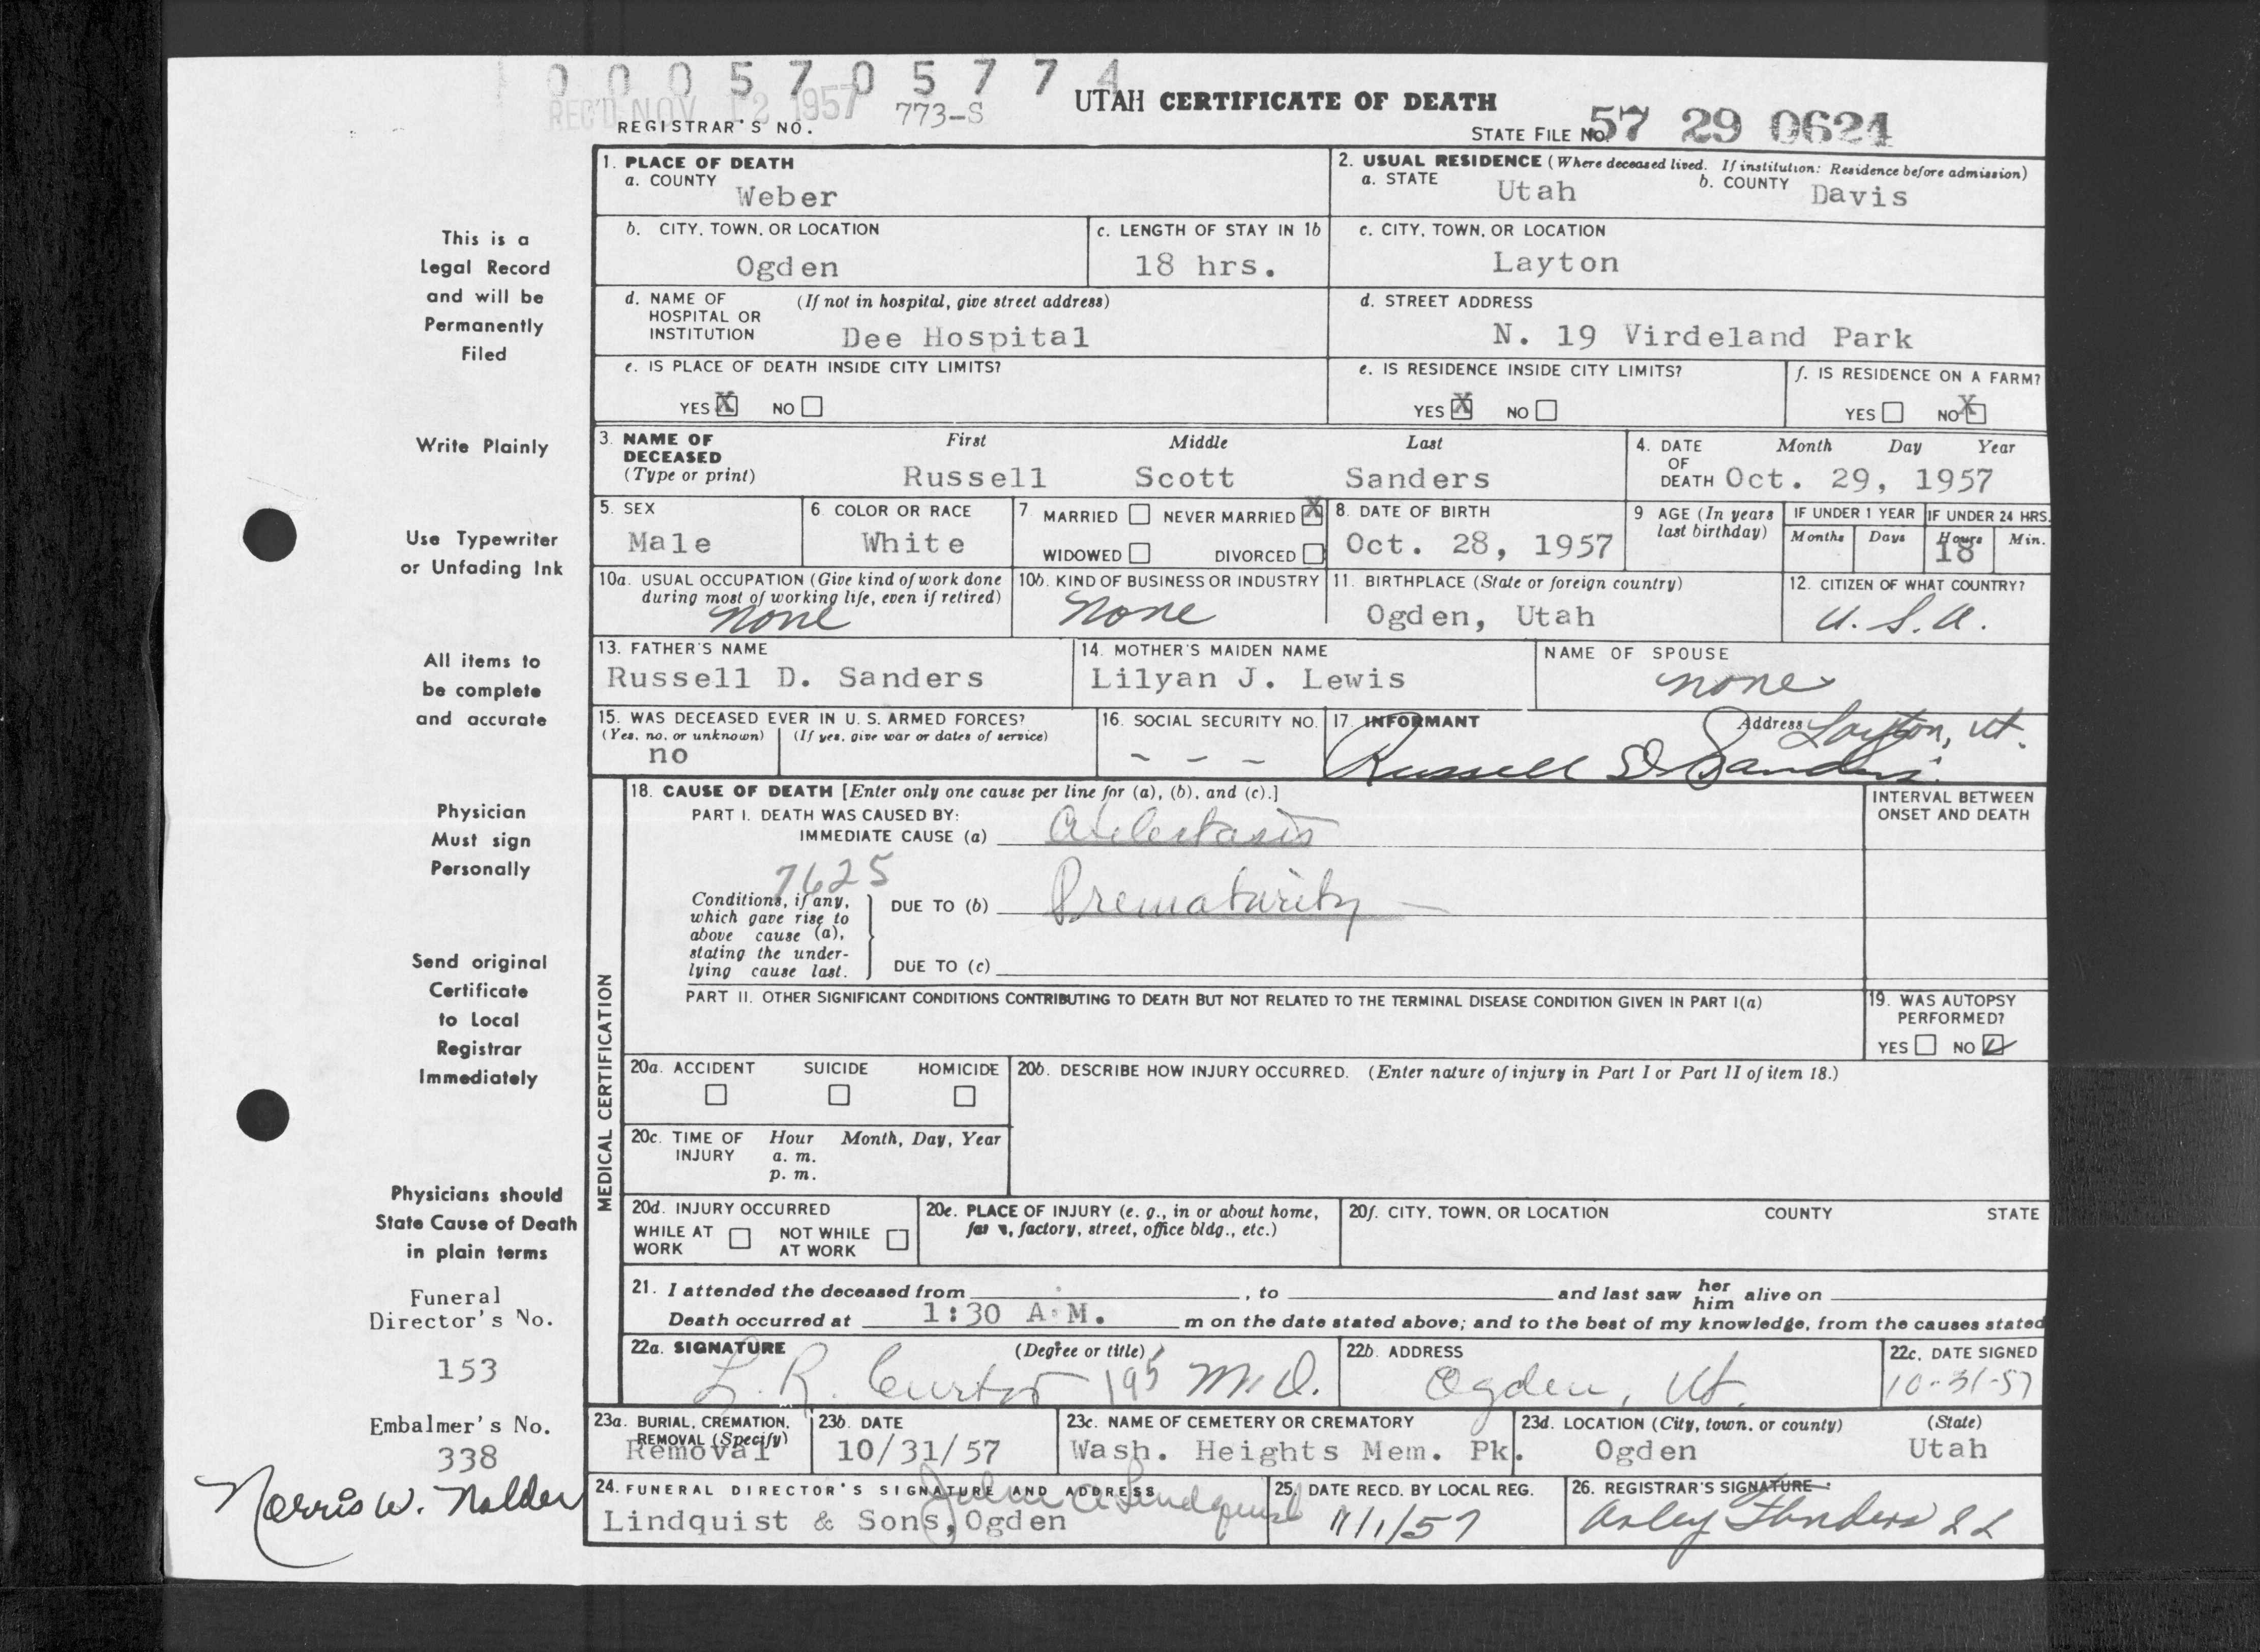 0 0 0 5 7 0 5 7 7 4
REC'D NOV 12 1957
773-S
UTAH CERTIFICATE OF DEATH
REGISTRAR'S NO.
STATE FILE No. 57 29 0624
This is a
Legal Record
and will be
Permanently
Filed
Write Plainly
Use Typewriter
or Unfading Ink
All items to
be complete
and accurate
Physician
Must sign
Personally
Send original
Certificate
to Local
Registrar
Immediately
Physicians should
State Cause of Death
in plain terms
Funeral
Director's No.
153
Embalmer's No.
338
Norris W. Nalder
1. PLACE OF DEATH
a. COUNTY
Weber
2. USUAL RESIDENCE (Where deceased lived. If institution: Residence before admission)
a. STATE Utah b. COUNTY Davis
b. CITY, TOWN, OR LOCATION
Ogden
c. LENGTH OF STAY IN 1b
18 hrs.
c. CITY, TOWN, OR LOCATION
Layton
d. NAME OF (If not in hospital, give street address)
HOSPITAL OR
INSTITUTION Dee Hospital
d. STREET ADDRESS
N. 19 Virdeland Park
e. IS PLACE OF DEATH INSIDE CITY LIMITS?
YES X NO
e. IS RESIDENCE INSIDE CITY LIMITS?
YES X NO
f. IS RESIDENCE ON A FARM?
YES NO X
3. NAME OF First Middle Last
DECEASED
(Type or print) Russell Scott Sanders
4. DATE Month Day Year
OF
DEATH Oct. 29, 1957
5. SEX
Male
6. COLOR OR RACE
White
7. MARRIED NEVER MARRIED X
WIDOWED DIVORCED
8. DATE OF BIRTH
Oct. 28, 1957
9 AGE (In years
last birthday)
IF UNDER 1 YEAR
Months Days
IF UNDER 24 HRS.
Hours Min.
18
10a. USUAL OCCUPATION (Give kind of work done
during most of working life, even if retired)
none
10b. KIND OF BUSINESS OR INDUSTRY
none
11. BIRTHPLACE (State or foreign country)
Ogden, Utah
12. CITIZEN OF WHAT COUNTRY?
U.S.A.
13. FATHER'S NAME
Russell D. Sanders
14. MOTHER'S MAIDEN NAME
Lilyan J. Lewis
NAME OF SPOUSE
none
15. WAS DECEASED EVER IN U.S. ARMED FORCES?
(Yes, no, or unknown) (If yes, give war or dates of service)
no
16. SOCIAL SECURITY NO.
- - -
17. INFORMANT Address Layton, Ut.
Russell D Sanders
MEDICAL CERTIFICATION
18. CAUSE OF DEATH [Enter only one cause per line for (a), (b), and (c).]
PART I. DEATH WAS CAUSED BY:
IMMEDIATE CAUSE (a) Atelectasis
INTERVAL BETWEEN
ONSET AND DEATH
7625
Conditions, if any,
which gave rise to
above cause (a),
stating the under-
lying cause last.
DUE TO (b) Prematurity
DUE TO (c)
PART II. OTHER SIGNIFICANT CONDITIONS CONTRIBUTING TO DEATH BUT NOT RELATED TO THE TERMINAL DISEASE CONDITION GIVEN IN PART I(a)
19. WAS AUTOPSY
PERFORMED?
YES NO
20a. ACCIDENT SUICIDE HOMICIDE
20b. DESCRIBE HOW INJURY OCCURRED. (Enter nature of injury in Part I or Part II of item 18.)
20c. TIME OF Hour Month, Day, Year
INJURY a. m.
p. m.
20d. INJURY OCCURRED
WHILE AT NOT WHILE
WORK AT WORK
20e. PLACE OF INJURY (e. g., in or about home,
farm, factory, street, office bldg., etc.)
20f. CITY, TOWN, OR LOCATION COUNTY STATE
21. I attended the deceased from , to and last saw her him alive on
Death occurred at 1:30 A.M. m on the date stated above; and to the best of my knowledge, from the causes stated
22a. SIGNATURE (Degree or title)
L. R. Curtis 195 M.D.
22b. ADDRESS
Ogden, Ut.
22c. DATE SIGNED
10-31-57
23a. BURIAL, CREMATION,
REMOVAL (Specify)
Removal
23b. DATE
10/31/57
23c. NAME OF CEMETERY OR CREMATORY
Wash. Heights Mem. Pk.
23d. LOCATION (City, town, or county) (State)
Ogden Utah
24. FUNERAL DIRECTOR'S SIGNATURE AND ADDRESS
John A Lindquist
Lindquist & Sons, Ogden
25. DATE RECD. BY LOCAL REG.
11/1/57
26. REGISTRAR'S SIGNATURE